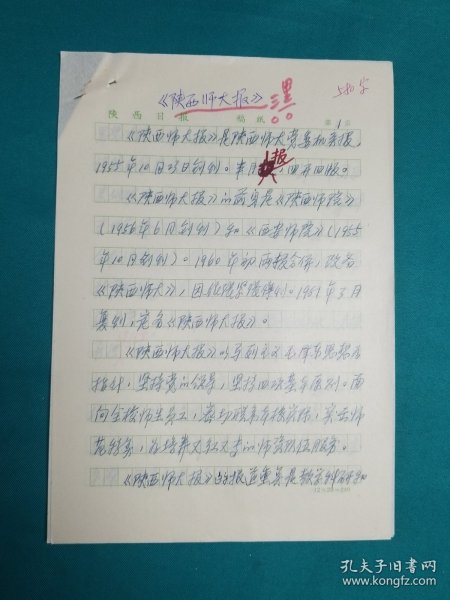 《陕西师大报》
580字
陕西日报 稿纸 第1页
《陕西师大报》是陕西师大党委机关报,
1955年10月25日创刊。半月报,四开四版。
《陕西师大报》的前身是《陕西师院》
(1956年6月创刊)和《西安师院》(1955
年10月创刊)。1960年初两报合併,改名
《陕西师大》,因此
刊。年3月
复刊,定名《陕西师大报》。
《陕西师大报》以马列主义毛泽东思想为
指针,坚持党的领导,坚持四项基本原则。面
向全校师生员工,密切联系实际,突出师
范特点,为培养又红又专的师资队伍服务。
《陕西师大报》的报道重点是教学科研和
12×20=240
孔夫子旧书网
www.kongfz.com